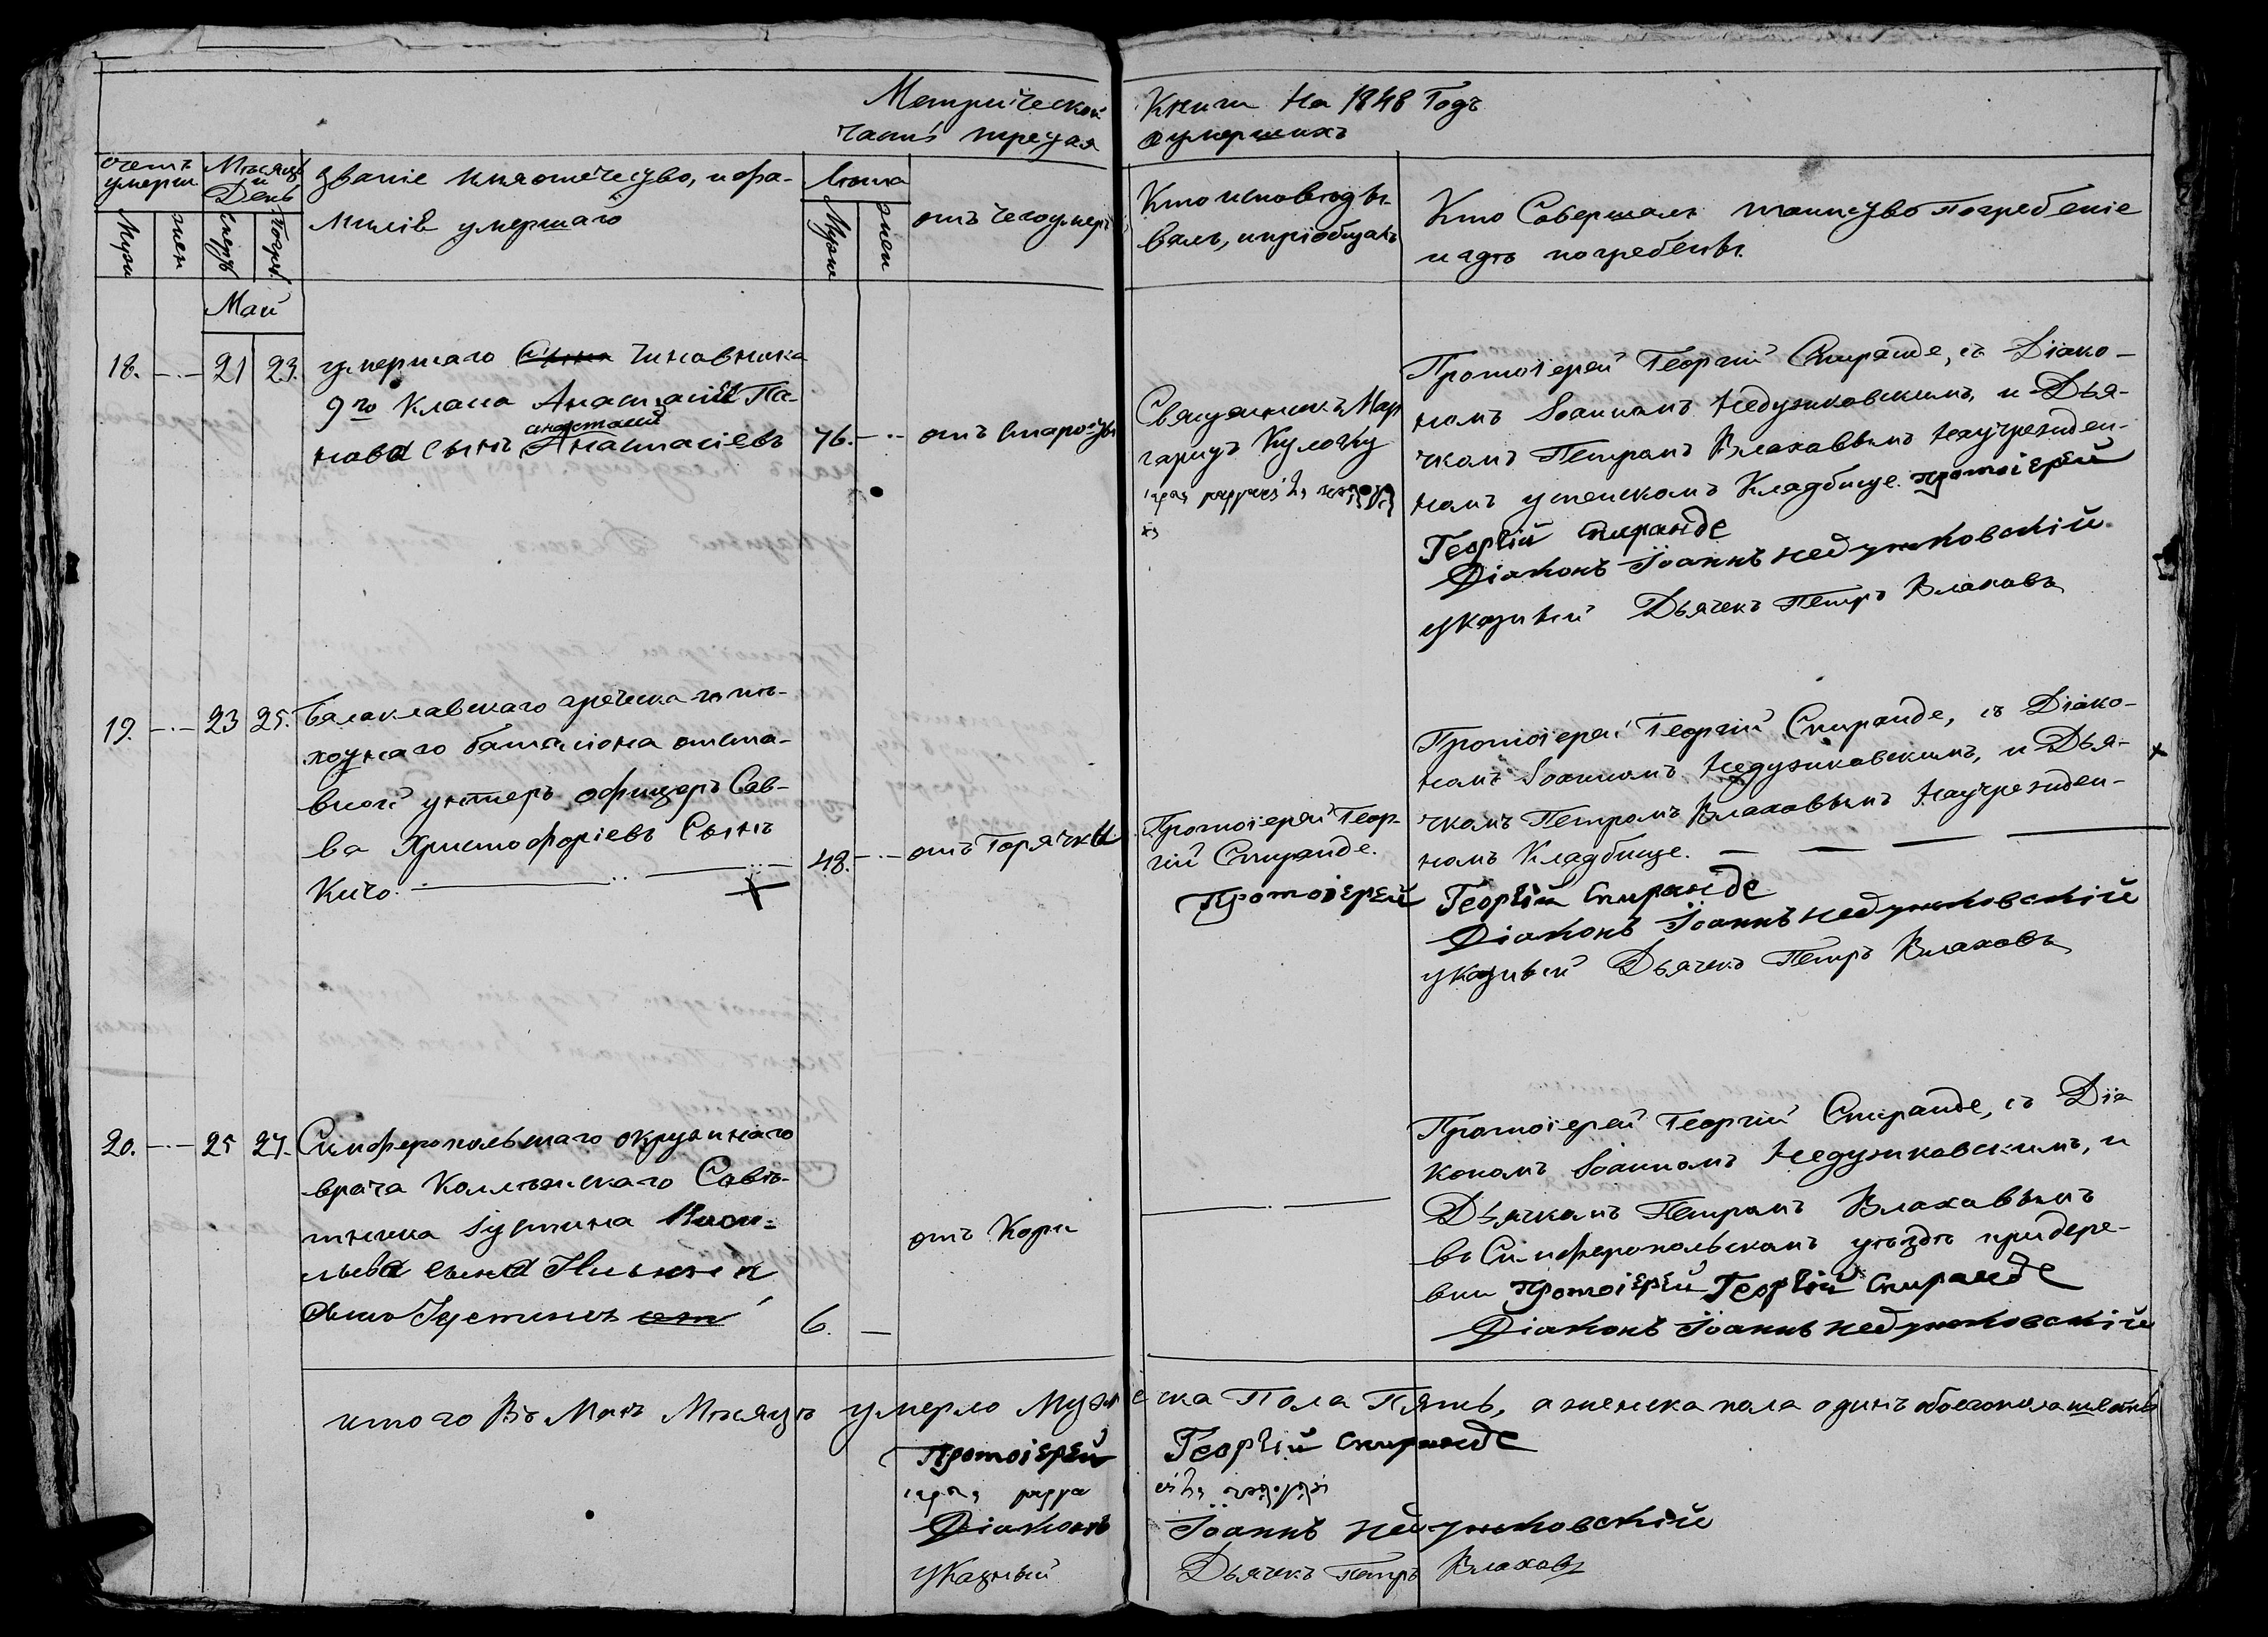 Метрической Книги на 1848 Годъ
часть третья о умершихъ
счетъ умерш
Мѣсяцъ и День
званіе имя отечество, и фа-
миліе умершаго
Лѣта
отъ чего умеръ
Кто исповѣды-
валъ, и пріобщалъ
Кто Совершалъ таинство погребеніе
и гдѣ погребены.
Мужс
жен
смерть
Погре.
Мужс
жен
Май
18. — 21 23.
умершаго Сына Чиновника
9го Класа Анастасія Па-
нова сынъ Анастасіевъ
анастасій
76. — отъ старости
Священникъ Мар
гаритъ Кулочку
Протоіерей Георгій Спиранде, съ Діако-
номъ Іоанномъ Недужковскимъ, и Дья-
чкомъ Петромъ Влаховымъ на учрежден-
номъ успенскомъ Кладбище. протоіерей
Георгій Спиранде
Діаконъ Іоаннъ Недужковскій.
указный Дьячекъ Петръ Влаховъ
19. — 23 25.
Балаклавскаго греческаго пѣ-
хотнаго баталіона отста-
вной унтеръ офицеръ Сав-
ва Христофоріевъ Сынъ
Кичо.
48. — отъ Горячкы
Протоіерей Геор-
гій Спиранде.
Протоіерей
Протоіерей Георгій Спиранде, съ Діако-
номъ Іоанномъ Недужковскимъ, и Дья-
чкомъ Петромъ Влаховымъ на учрежден-
номъ Кладбище.
Георгій Спиранде
Діаконъ Іоаннъ Недужковскій
указный Дьячекъ Петръ Влаховъ
20. — 25 27.
Симферопольскаго окружнаго
врача Коллежскаго Совѣ-
тника Іустина Васи-
льева сына
сынъ Іустинъ
6. —
отъ Кори
Протоіерей Георгій Спиранде, съ Діа
кономъ Іоанномъ Недужковскимъ, и
Дьячкомъ Петромъ Влаховымъ
въ Симферопольскомъ уѣздѣ при дере-
вни Протоіерей Георгій Спиранде
Діаконъ Іоаннъ Недужковскій
итого Въ Маѣ Мѣсяцѣ умерло Мужеска Пола Пять, а женска пола одинъ обоего пола шесть
Протоіерей Георгій Спиранде
Діаконъ Іоаннъ Недужковскій
указный Дьячекъ Петръ Влаховъ